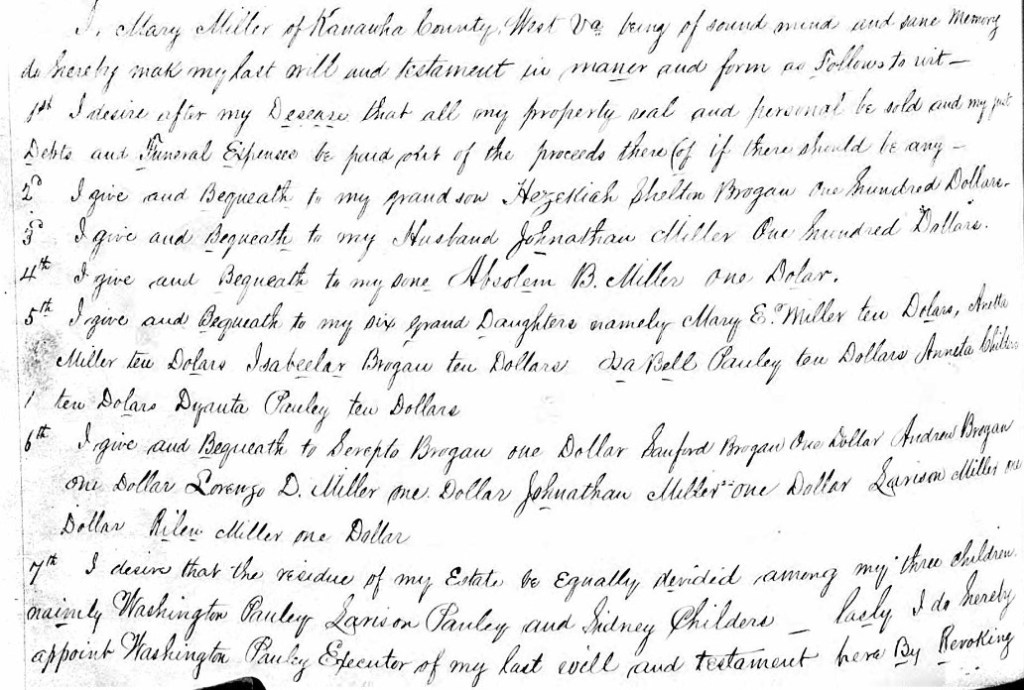 I, Mary Miller of Kanawha County, West Va being of sound mind and sane Memory
do hereby mak my last will and testament in maner and form as Follows to wit —
1st I desire after my Desease that all my property real and personal be sold and my just
Debts and Funeral Expenses be paid out of the proceeds there of if there should be any —
2d I give and Bequeath to my grand son Hezekiah Shelton Brogan One hundred Dollars.
3d I give and Bequeath to my Husband Johnathan Miller One hundred Dollars.
4th I give and Bequeath to my sone Absolem B. Miller one Dolar.
5th I give and Bequeath to my six grand Daughters namely Mary E. Miller ten Dolars, Anetta
Miller ten Dolars Isabeelar Brogan ten Dollars IsaBell Pauley ten Dollars Anneta Childers
ten Dolars Dyanta Pauley ten Dollars
6th I give and Bequeath to Serepto Brogan one Dollar Sanford Brogan One Dollar Andrew Brogan
one Dollar Lorenzo D. Miller one Dollar Johnathan Miller one Dollar Larison Miller one
Dollar Riley Miller one Dollar
7th I desire that the residue of my Estate be Equally devided among my three children
naimly Washington Pauley Larison Pauley and Sidney Childers — lasly I do hereby
appoint Washington Pauley Executor of my last will and testament here By Revoking